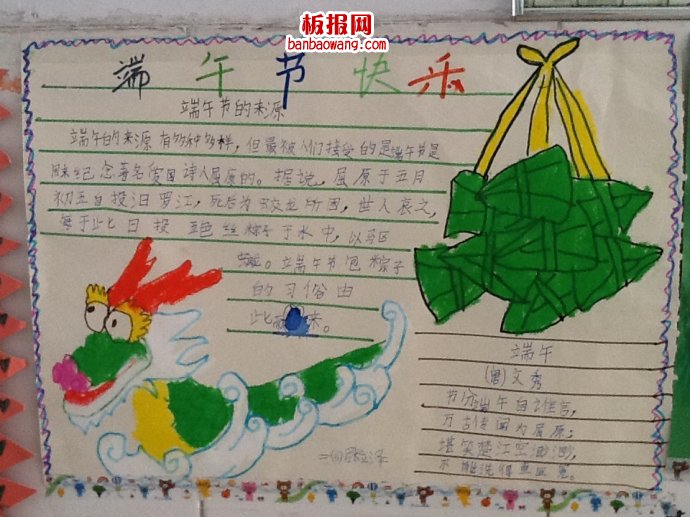 板报网
banbaowang.com
端午节快乐
端午节的来源
端午的来源有多种多样，但最被人们接受的是端午节是
念著名爱国诗人屈原的。据说，屈原于五月
初五自投汨罗江，死后为蛟龙所困，世人哀之，
每于此日投五色丝粽子于水中，以驱
蛟龙。端午节包粽子
的习俗由
此 来。
端午
(唐)文秀
节分端午自谁言，
万古传闻为屈原；
堪笑楚江空渺渺，
不能洗得直臣冤。